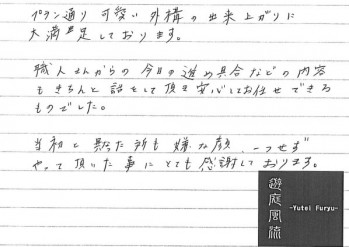 プラン通り 可愛い 外構の出来上がりに
大満足しております。
職人さんからの 今日の進め具合などの内容
もきちんと話をして頂き安心してお任せできる
ものでした。
当初と異なった所も嫌な顔、一つせず
やって頂いた事にとても感謝しております。
遊庭風流
-Yutei Furyu-